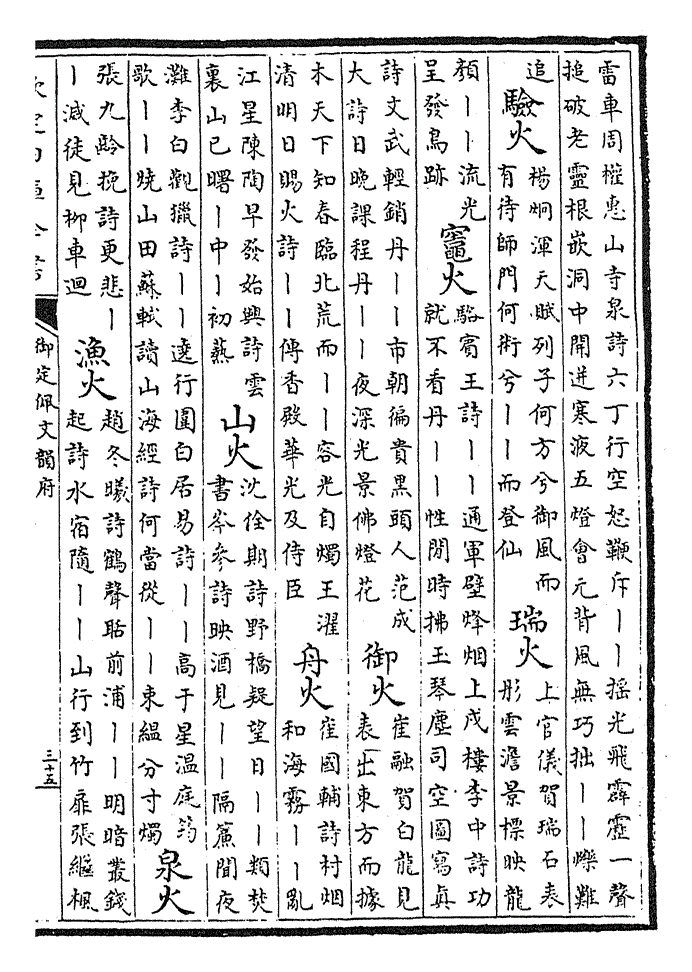 雷車周權惠山寺泉詩六丁行空怒鞭斥丨丨揺光飛霹靂一聲
搥破老靈根嵌洞中開迸寒液五燈會元背風無巧拙丨丨爍難
追
驗火
楊炯渾天賦列子何方兮御風而
有待師門何術兮丨丨而登仙
瑞火
上官儀賀瑞石表
彤雲澹景標映龍
顔丨丨流光
呈發鳥跡
竈火
駱賓王詩丨丨通軍壁烽烟上戍樓李中詩功
就不看丹丨丨性閒時拂玉琴塵司空圖寫眞
詩文武輕銷丹丨丨市朝徧貴黑頭人范成
大詩日晚課程丹丨丨夜深光景佛燈花
御火
崔融賀白龍見
表出東方而據
木天下知春臨北荒而丨丨容光自燭王濯
清明日賜火詩丨丨傳香殿華光及侍臣
舟火
崔國輔詩村烟
和海霧丨丨亂
江星陳陶早發始興詩雲
裏山已曙丨中丨初爇
山火
沈佺期詩野橋疑望日丨丨類焚
書岑參詩映酒見丨丨隔簾聞夜
灘李白觀獵詩丨丨逺行圍白居易詩丨丨高于星温庭筠
歌丨丨燒山田蘇軾讀山海經詩何當從丨丨束緼分寸燭
泉火
張九齡挽詩更悲丨
丨滅徒見柳車迴
漁火
趙冬曦詩鶴聲聒前浦丨丨明暗叢錢
起詩水宿隨丨丨山行到竹扉張繼楓
欽定四庫全書
御定佩文韻府
三十五